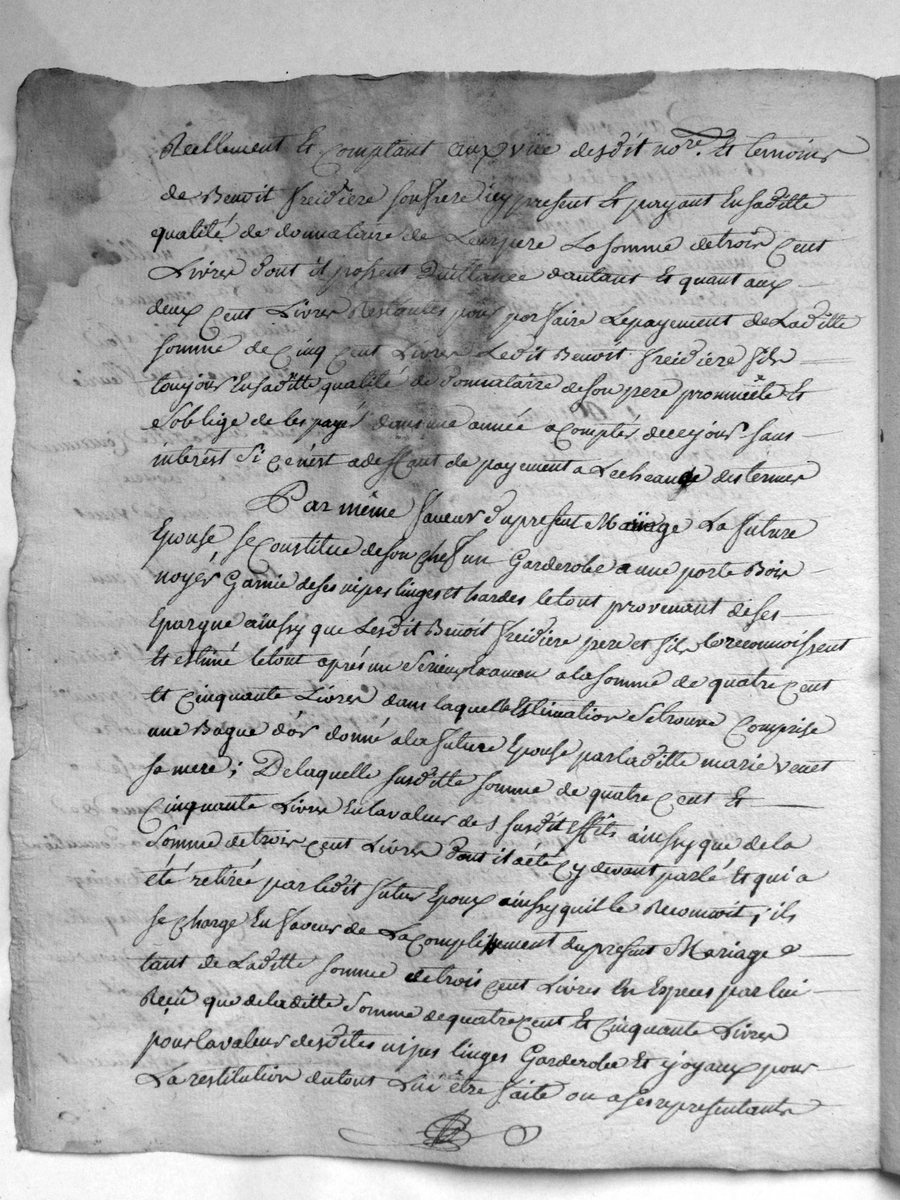 Reellement Et Comptant aux vüe desdit no.re Et temoins
de Benoit freidiere son frere icy present Et payant En saditte
qualité de donnataire de Leur pere La somme de trois Cent
Livres dont il passent Quittance d'autant Et quant aux
deux Cent Livres Restantes pour parfaire Le payement de Laditte
somme de Cinq Cent Livres Ledit Benoit freidiere fils
toujours En saditte qualité de donnataire de son pere promette Et
s'oblige de les payé dans une année a Compter de ce jour sans
interest Si Ce n'est a deffaut de payement a L'echeance des termes
Par même faveur du present Mariage La future
Epouse se Constitue de son Chef un Garderobe a une porte Bois
noyer Garnie de ses nipes linges et hardes le tout provenant de ses
Epargne ainssy que Lesdit Benoit freidiere pere et fils le reconnoissent
Et estimé le tout après un Serieux Examen a la somme de quatre Cent
Et Cinquante Livres dans laquelle Estimation se trouve Comprise
une Bague d'or donné a la future Epouse par laditte marie venet
sa mere; De laquelle susditte somme de quatre Cent Et
Cinquante Livres En la valeur des susdit Effets ainssy que de la
Somme de trois Cent Livres dont il a eté Cy devant parlé Et qui a
été retirée par ledit futur Epoux ainssy quil le Reconnoit, ils
se Charge En faveur de L'accomplissement du present Mariage
tant de Laditte somme de trois Cent Livres En Especes par lui
Reçu que de laditte Somme de quatre Cent Et Cinquante Livres
pour la valeur desdites nipes linges Garderobe Et joyaux pour
La restitution du tous Lui être faite ou a ses representants